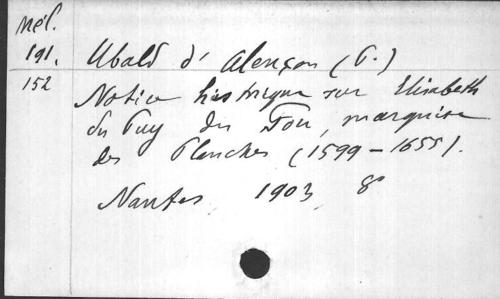 Mél.
191.
152
Ubald d'Alençon (P.)
Notice historique sur Elisabeth
du Puy du Fou, marquise
des Planches (1599-1655).
Nantes 1903, 8°